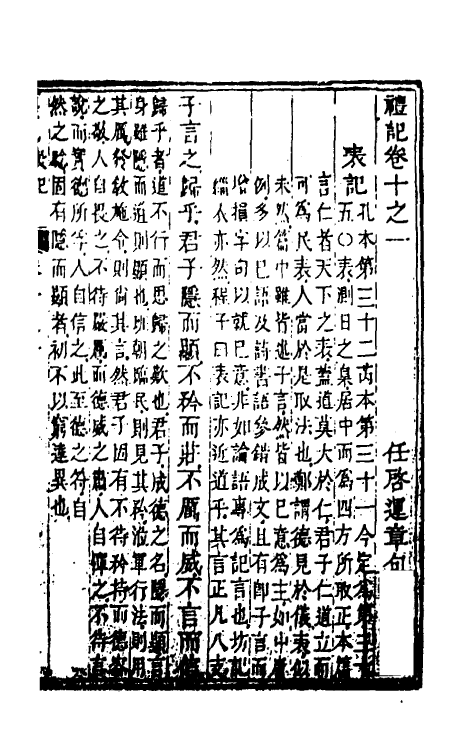 禮記卷十之一　任啓運章句
表記孔本第三十二芮本第三十一今定本第三十
五〇表測日之臬居中而為四方所取正本篇
言仁者天下之表蓋道莫大於仁君子仁道立而
可為民表人當於是取法也鄭謂德見於儀表似
未然篇中雖皆述子言然皆以己意為主如中庸
例多以己語及詩書語參錯成文且有卽子言而
增損字句以就己意非如論語專為記言也坊記
緇衣亦然程子曰表記亦近道乎其言正凡八支
子言之歸乎君子隱而顯不矜而莊不厲而威不言而信
歸乎者道不行而思歸之歎也君子成德之名隱而顯言
身雖隱而道則顯也班朝臨民則見其矜涖軍行法則用
其厲發敎施令則尚其言然君子固有不待矜持而德容
之敬人自畏之不待嚴厲而德威之肅人自憚之不待言
說而實德所孚人自信之此至德之符自
然之驗固有隱而顯者初不以窮達異也